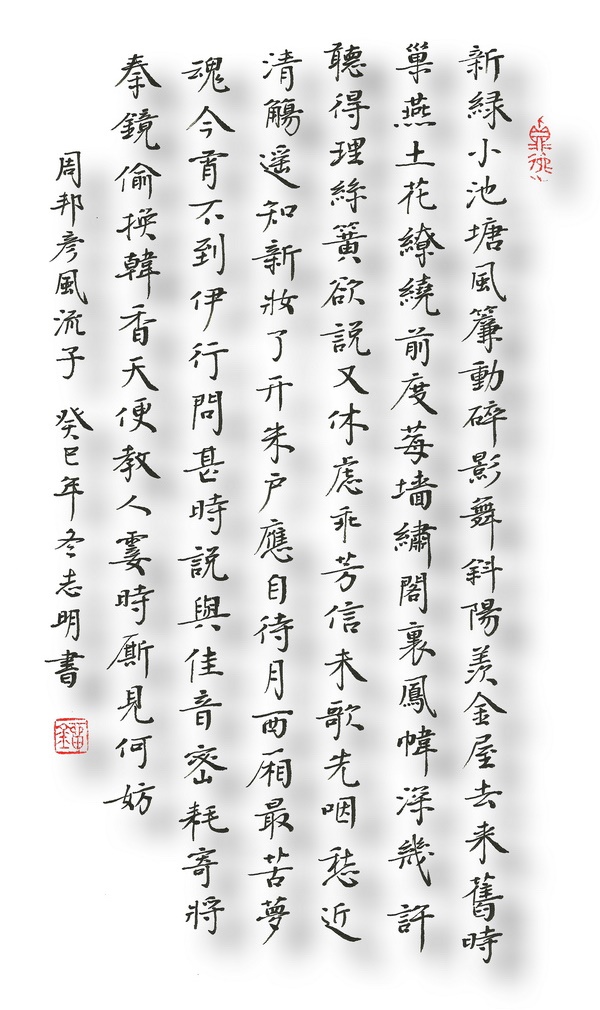 新緑小池塘風簾動碎影舞斜陽羨金屋去来舊時
巢燕土花繚繞前度莓墻繡閣裏鳳幃深幾許
聽得理絲簧欲説又休慮乖芳信未歌先咽愁近
清觴遥知新妝了开朱户應自待月西厢最苦夢
魂今宵不到伊行問甚時説與佳音密耗寄將
秦鏡偷換韓香天便教人霎時厮見何妨
周邦彦風流子 癸巳年冬志明書